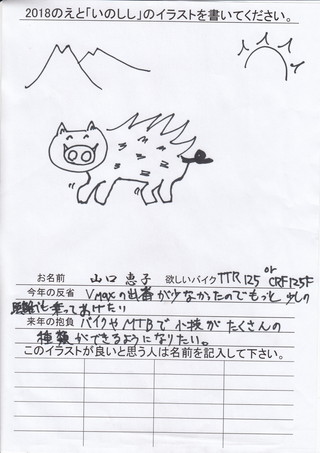 2018のえと「いのしし」のイラストを書いてください。
お名前 山口 恵子 欲しいバイク TTR125 or CRF125F
今年の反省 Vmaxの出番が少なかったのでもっと少しの
距離でも乗ってあげたい
来年の抱負 バイクやMTBで小技がたくさんの
種類ができるようになりたい。
このイラストが良いと思う人は名前を記入して下さい。